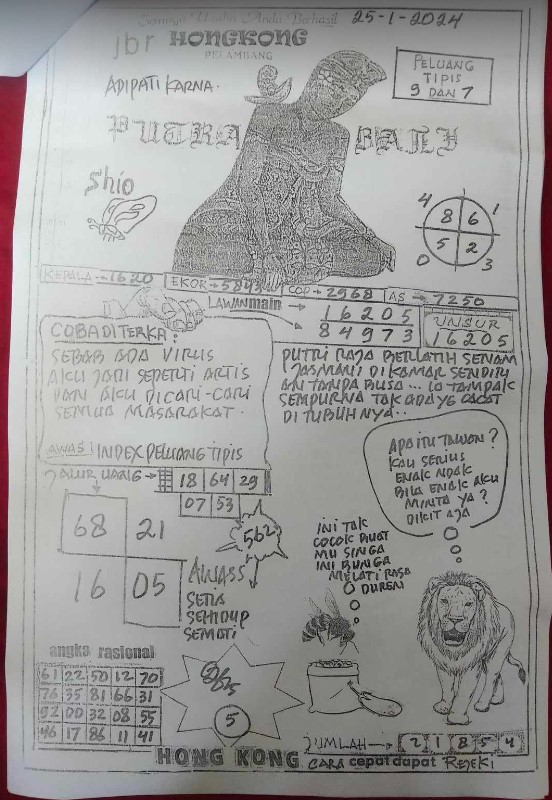 Semoga Usaha Anda Berhasil
25-1-2024
jbr HONGKONG
PELAMBANG
ADIPATI KARNA.
PELUANG
TIPIS
9 DAN 7
PUTRA BALI
Shio
4 8 6 1
0 5 2 3
KEPALA→1620
EKOR→5843
COP→2968
AS→7250
LAWAN main
16205
84973
UNSUR
16205
COBA DITERKA:
SEBAB ADA VIRUS
AKU JADI SEPERTI ARTIS
DAN AKU DICARI-CARI
SEMUA MASARAKAT.
PUTRI RAJA BERLATIH SENAM
JASMANI DI KAMAR SENDIRI
AN TANPA BUSA... IA TAMPAK
SEMPURNA TAK ADA YG CACAT
DI TUBUHNYA..
AWAS! INDEX PELUANG TIPIS
JALUR UANG→
18 64 29
07 53
68 21
16 05
562
AWASS
SETIA
SEHIDUP
SEMATI
APA ITU TAWON?
KAU SERIUS
ENAK NDAK
BILA ENAK AKU
MINTA YA?
DIKIT AJA
INI TAK
COCOK BUAT
MU SINGA
INI BUNGA
MELATI RASA
DUREN
angka rasional
61 22 50 12 70
76 35 81 66 31
92 00 32 08 55
46 17 86 11 41
5
JUMLAH→ 2 1 8 5 4
HONG KONG
CARA cepat dapat REJEKI